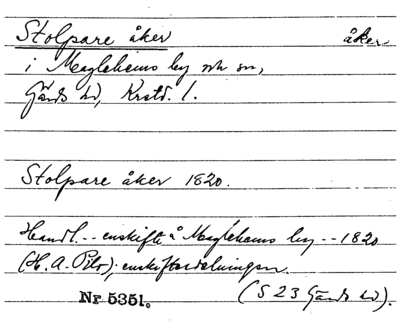 Stolpare åker åker
i Maglehems by och sn,
Gärds hd, Krstd. l.
Stolpare åker 1820.
Handl. - - enskifte å Maglehems by - - 1820
(H. A. Pihl); enskiftesdelningen.
Nr 5351. (S 23 Gärds hd).